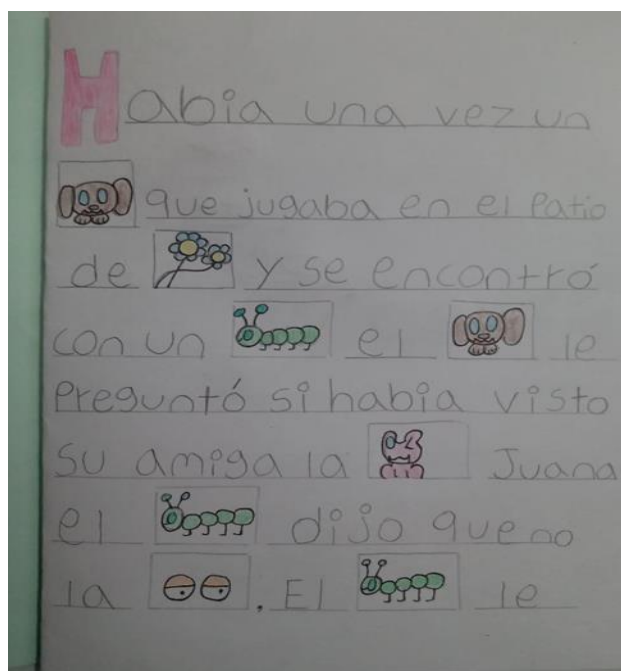 Habia una vez un
que jugaba en el Patio
de y se encontró
con un el le
Preguntó si habia visto
su amiga la Juana
el dijo que no
la . El le